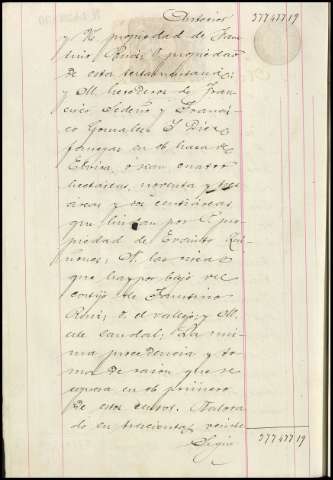 Anterior 37747 19
y N. propiedad de Faus
tino Ruiz; P. propiedad
de esta testamentaria;
y M. herederos de Fran
cisco Sedeño y Francis
co Gonzalez. Y Diez
fanegas en el haza de
Elvira, ó sean cuatro
hectáreas, noventa y tres
áreas y centiáreas
que lindan por L. pro
piedad de Evaristo Qui
ñones; N. las viñas
que hay por bajo del
cortijo de Faustino
Ruiz; P. el vallejo; y M.
este caudal; La mis
ma procedencia y to
ma de razon que se
expresa en el primero
de estos cursos. Valora
do en trescientas veinte
Sigue 37747 19